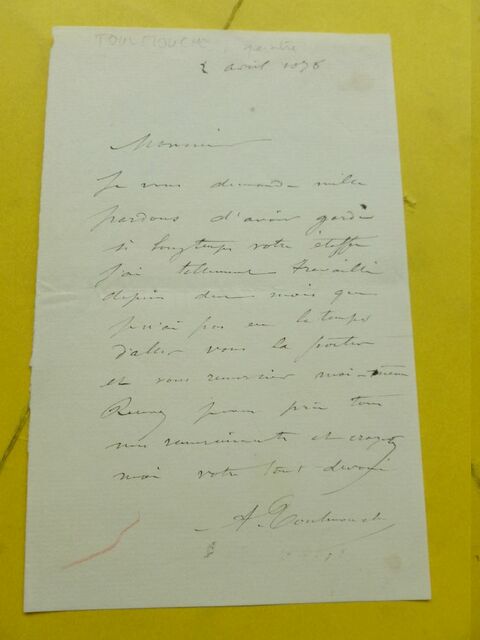 TOULMOUCHE, peintre
2 avril 1876
Monsieur
Je vous demande mille
pardons d'avoir gardé
si longtemps votre étoffe
j'ai tellement travaillé
depuis deux mois que
je n'ai pas eu le temps
d'aller vous la porter
et vous remercier moi-même
Recevez je vous prie tous
mes remerciements et croyez
moi votre tout dévoué
A. Toulmouche